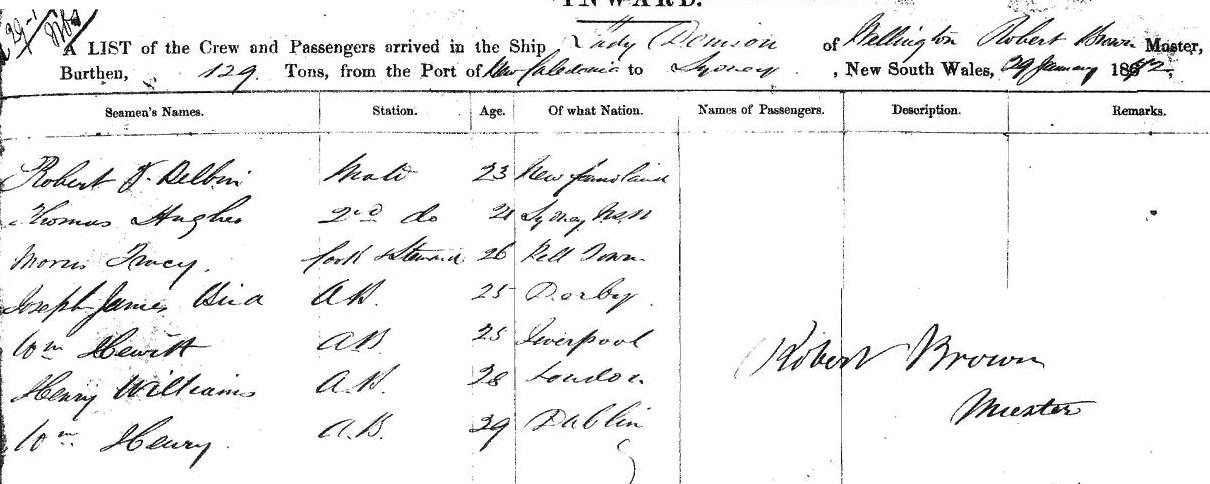 INWARD.
29-1
A LIST of the Crew and Passengers arrived in the Ship Lady Denison of Wellington Robert Brown Master,
Burthen, 129 Tons, from the Port of New Caledonia to Sydney, New South Wales, 29 January 1862
Seamen's Names. Station. Age. Of what Nation. Names of Passengers. Description. Remarks.
Robert Mate 23 Newfoundland
Thomas Hughes 2nd do 21 Sydney NSW
Morris Tracy. Cook & Steward 26 Town
Joseph James A.B. 25 Derby
Wm Hewitt A.B. 25 Liverpool
Henry Williams A.B. 28 London
Wm Henry. A.B. 29 Dublin
Robert Brown
Master